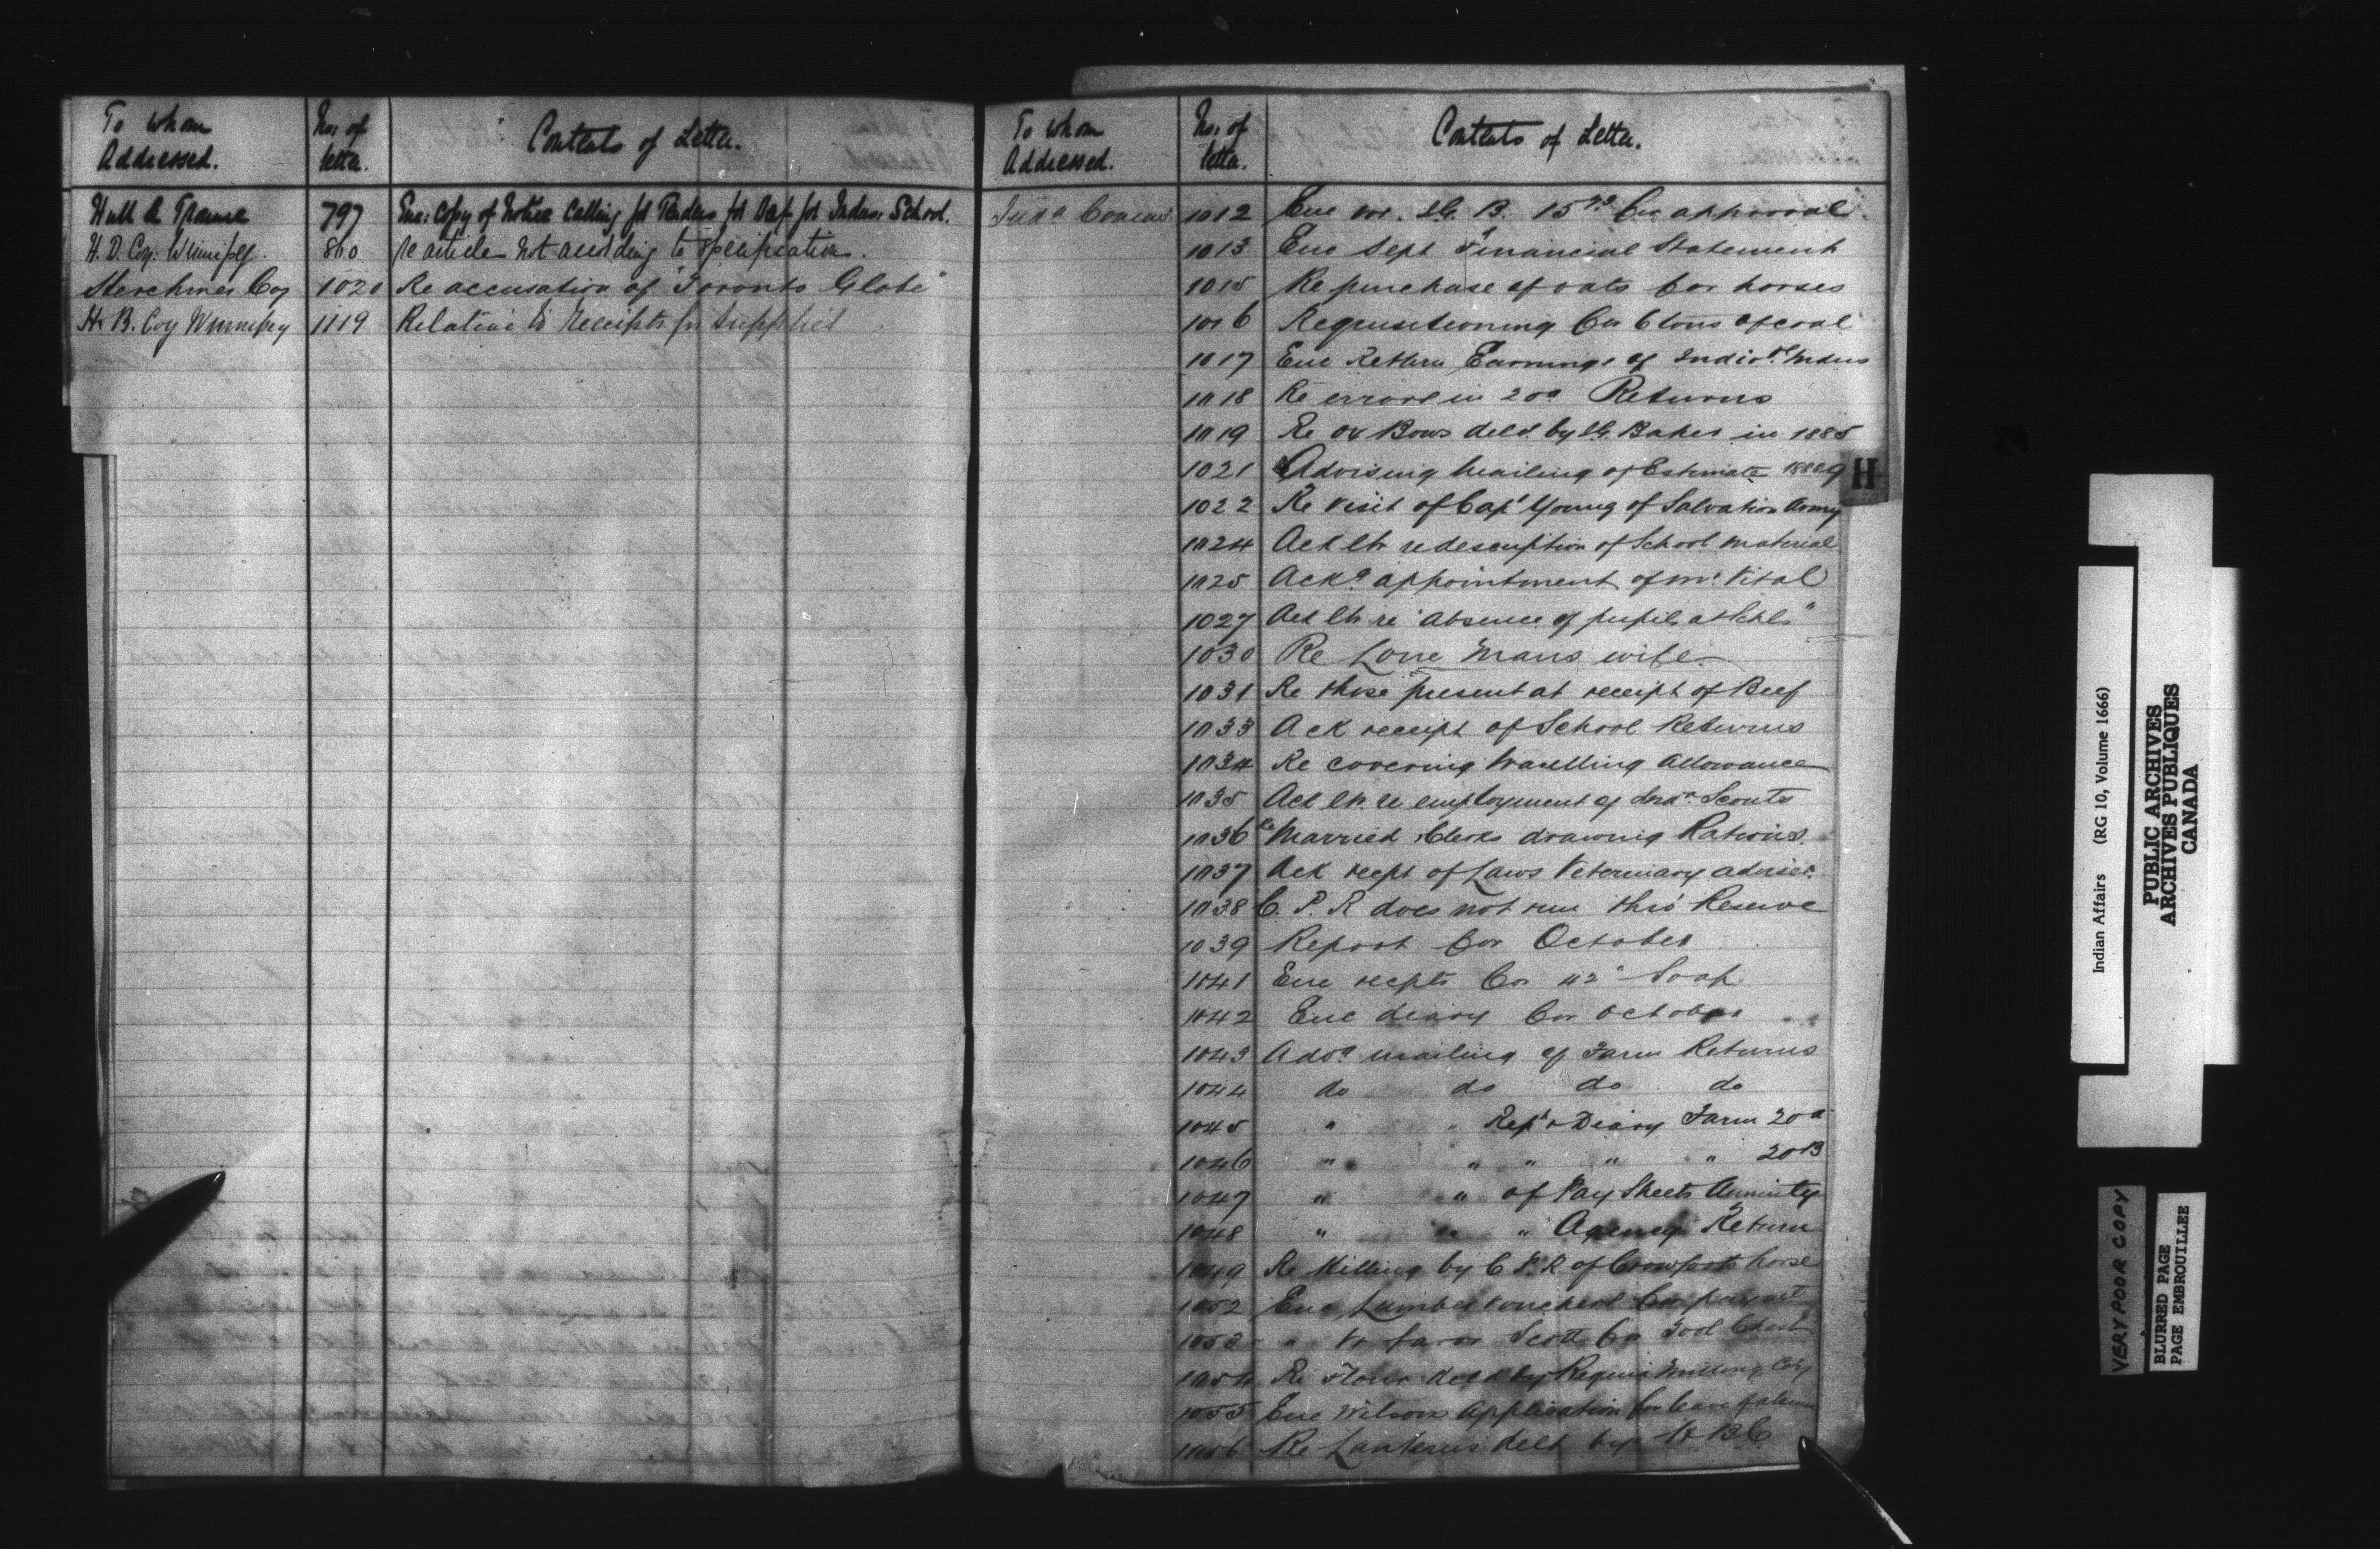 To whom Addressed. No: of letter. Contents of Letter.
Hull & Trounce 797 Enc: Copy of Notice Calling for Tenders for Beef for Indus: School.
H. B. Coy: Winnipeg. 860 re articles not according to specification.
Herchmer Coy 1020 Re accusation of "Toronto Globe"
H. B. Coy Winnipeg 1119 Relative to Receipts for Supplies
To whom Addressed. No: of letter. Contents of Letter.
1012 Enc vor. I.G. B. for approval
1013 Enc Sept Financial Statement
1015 Re purchase of oats for horses
1016 Requisitioning for 6 tons of coal
1017 Enc Return Earnings of Indivdl Indns
1018 Re errors in 20a Returns
1019 Re Ox Bows deld by I.G. Baker in 1885
1021 Advising mailing of Estimate 1888-9
1022 Re visit of Capt Young of Salvation Army
1024 Ack ltr re description of School material
1025 Ackg appointment of Mr. Vital
1027 Ack ltr re "absence of pupils at Schl"
1030 Re Lone Mans wife
1031 Re those present at receipt of Beef
1033 Ack receipt of School Returns
1034 Re covering travelling Allowance
1035 Ack ltr. re employment of Indn. Scouts
1036 Re Married Clerks drawing Rations.
1037 Ack recpt of Laws Veterinary adviser.
1038 C. P. R does not run thro' Reserve
1039 Report for October
1041 Enc recpts for 42" Soap
1042 Enc diary for October
1043 Advg mailing of Farm Returns
1044 do do do do
1045 " " Rept & Diary Farm 20a
1046 " " " " " 20B
1047 " " of Pay Sheets Annuity
1048 " " " Agency Return
1049 Re Killing by C P. R of Crowfoots horse
1052 Enc Lumber vouchers for
1053 " Vr favor Scott for Tool Chest
1054 Re Flour deld by Regina Milling Coy
1055 Enc Wilsons Application for leave of absence
1056 Re Lanterns deld by H B C
H
Indian Affairs (RG 10, Volume 1666)
PUBLIC ARCHIVES
ARCHIVES PUBLIQUES
CANADA
VERY POOR COPY
BLURRED PAGE
PAGE EMBROUILLEE